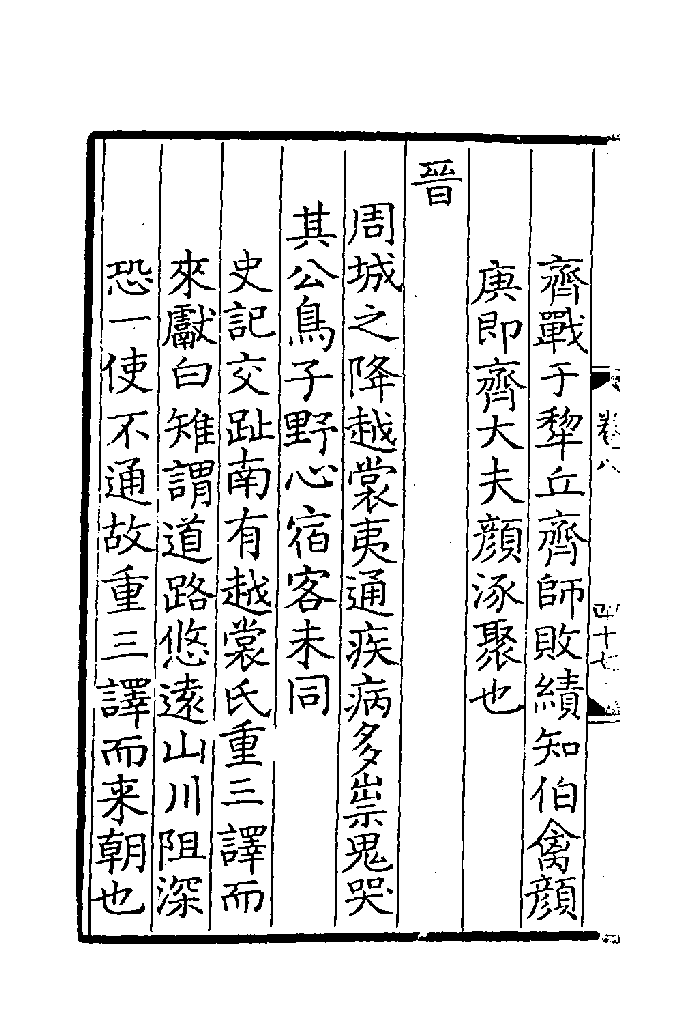 齊戰于犂丘齊師敗績知伯禽顏
庚即齊大夫顏涿聚也
晉
周城之降越裳夷通疾病多祟鬼哭
其公鳥子野心宿客未同
史記交趾南有越裳氏重三譯而
來獻白雉謂道路悠遠山川阻深
恐一使不通故重三譯而来朝也
卷八
四十七